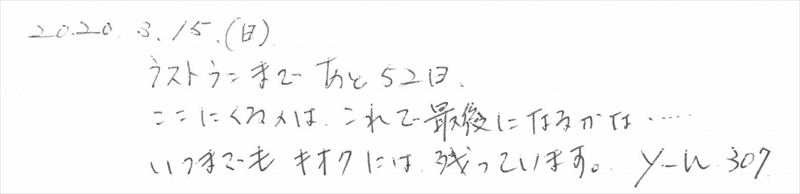 2020.3.15.(日)
ラストランまで あと52日.
ここにくるのは、これで最後になるかな……
いつまでも キオクには、残っています。 Y-N 307